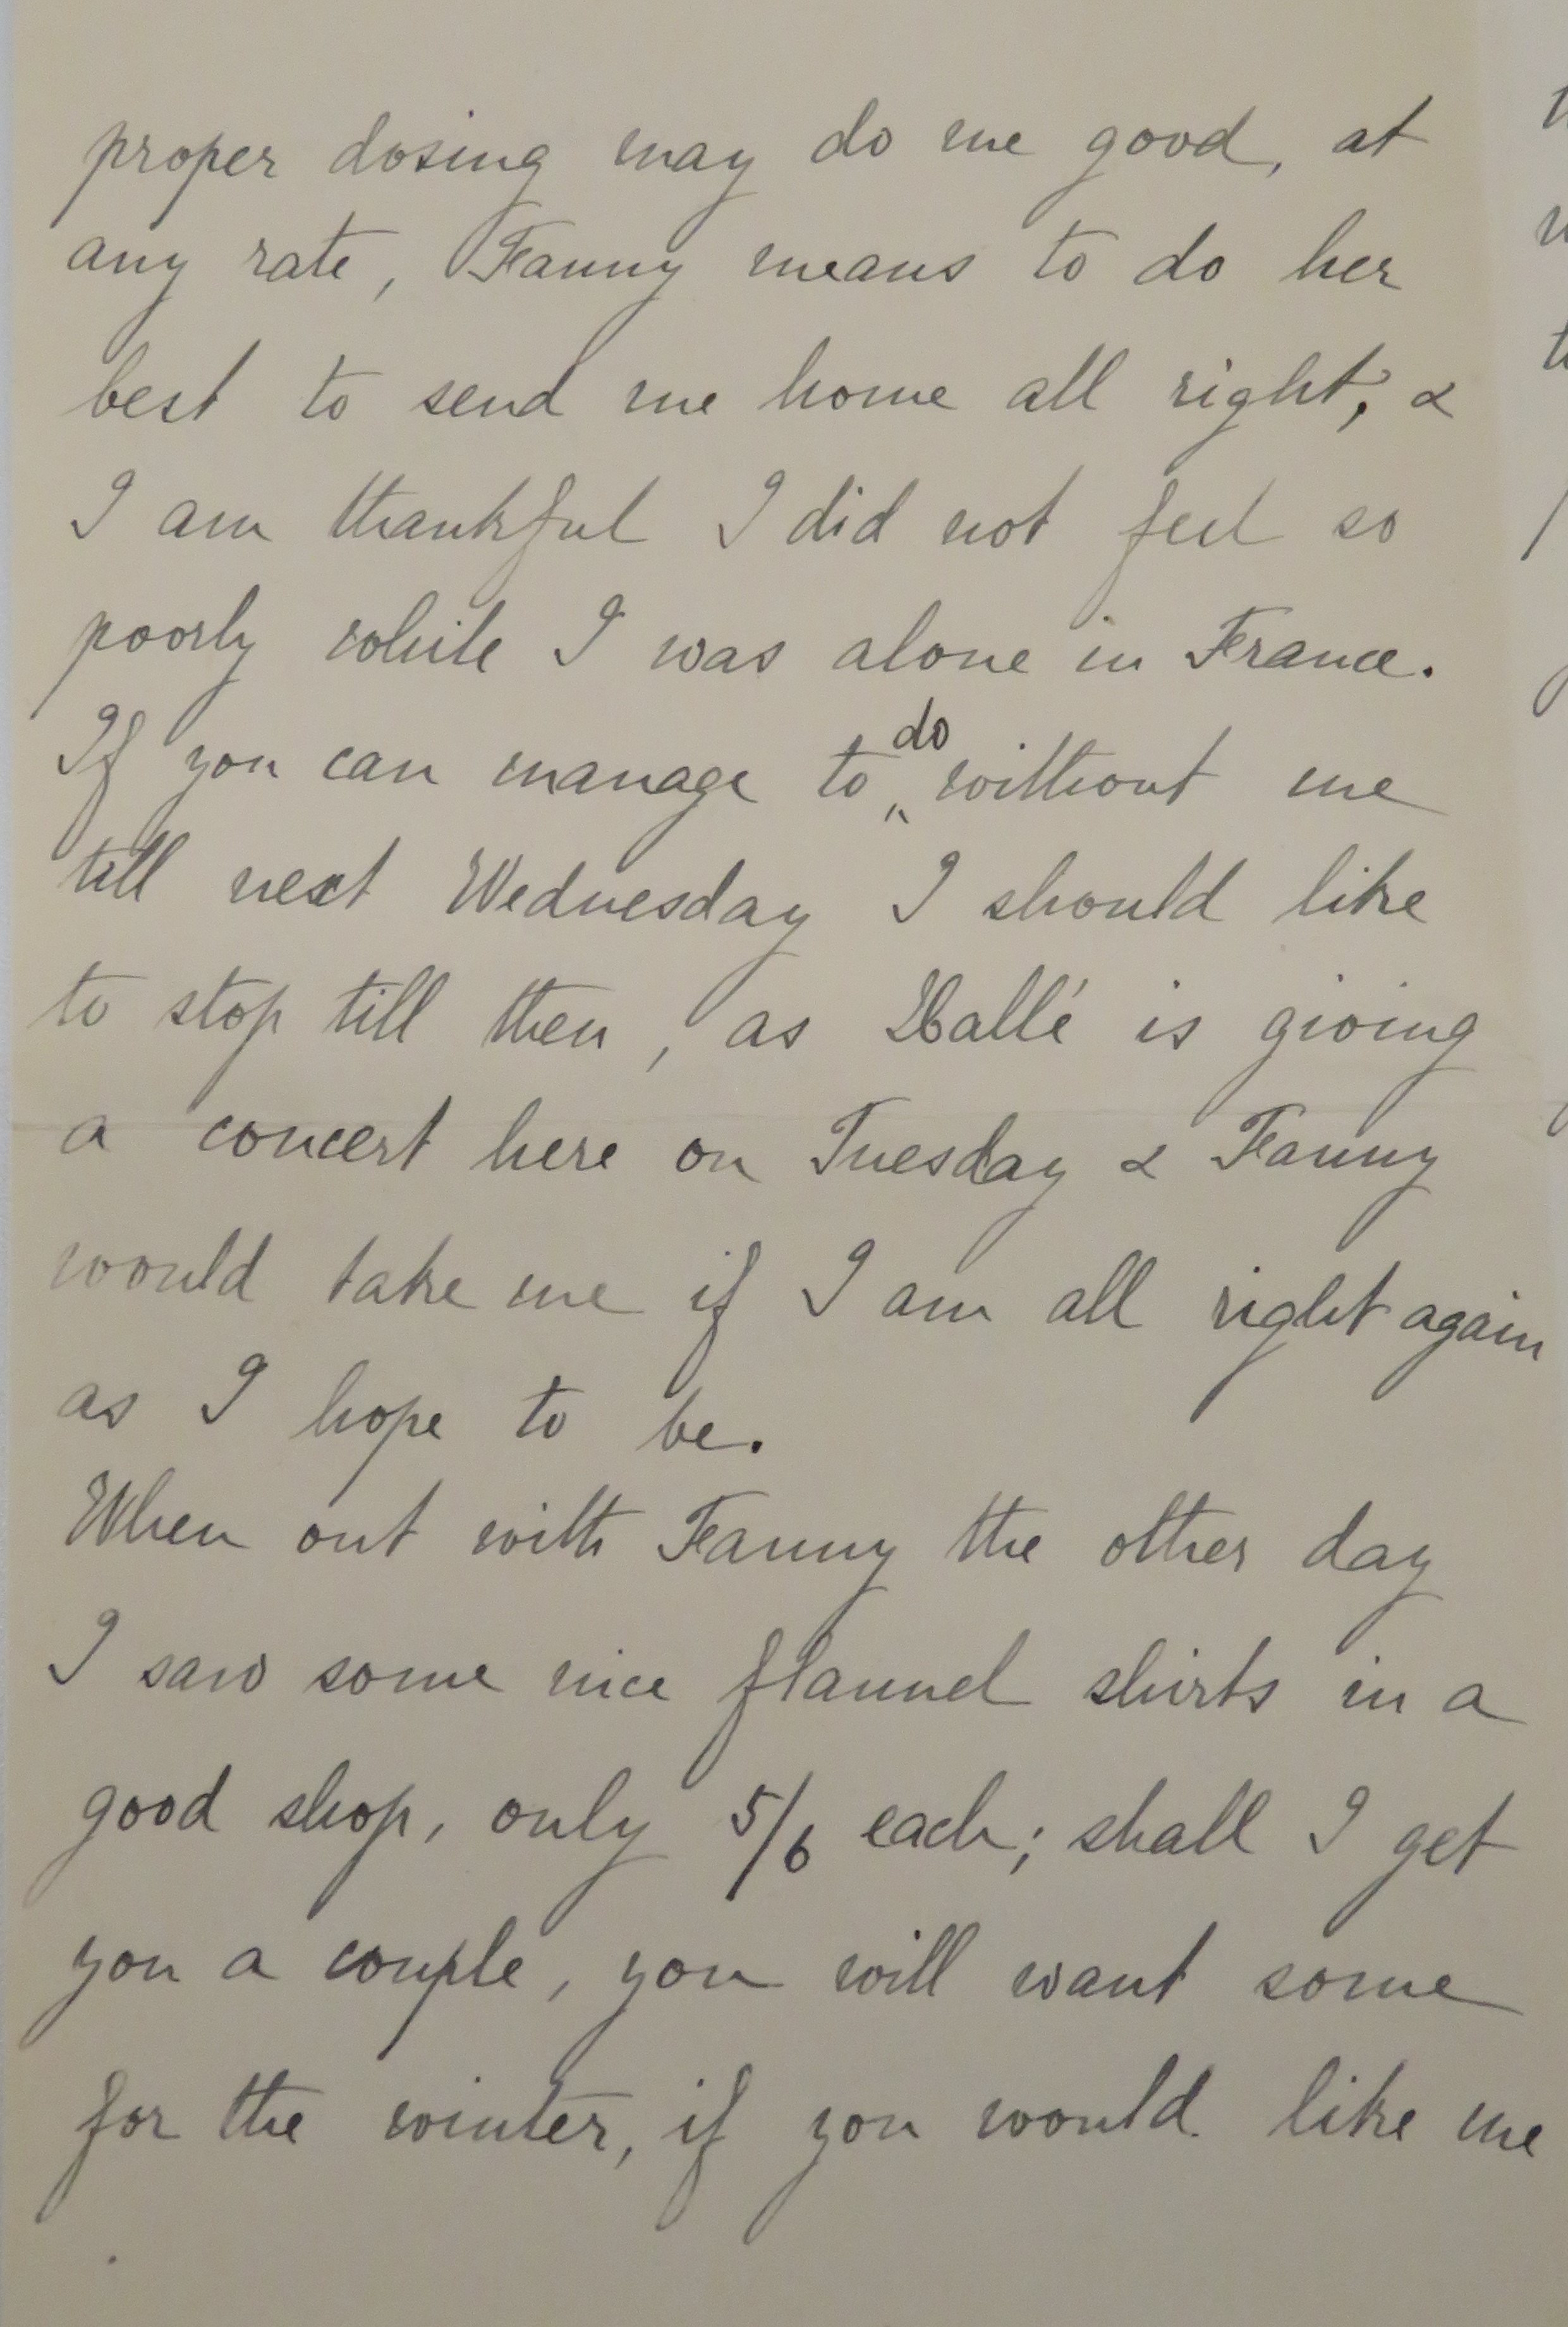 proper dosing may do me good, at
any rate, Fanny means to do her
best to send me home all right, &
I am thankful I did not feel so
poorly while I was alone in France.
If you can manage to do without me
till next Wednesday I should like
to stop till then, as Hallé is giving
a concert here on Tuesday & Fanny
would take me if I am all right again
as I hope to be.
When out with Fanny the other day
I saw some nice flannel shirts in a
good shop, only 5/6 each; shall I get
you a couple, you will want some
for the winter, if you would like me